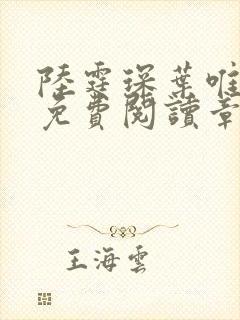 陸霆琛葉唯
免費閱讀章
王海雲